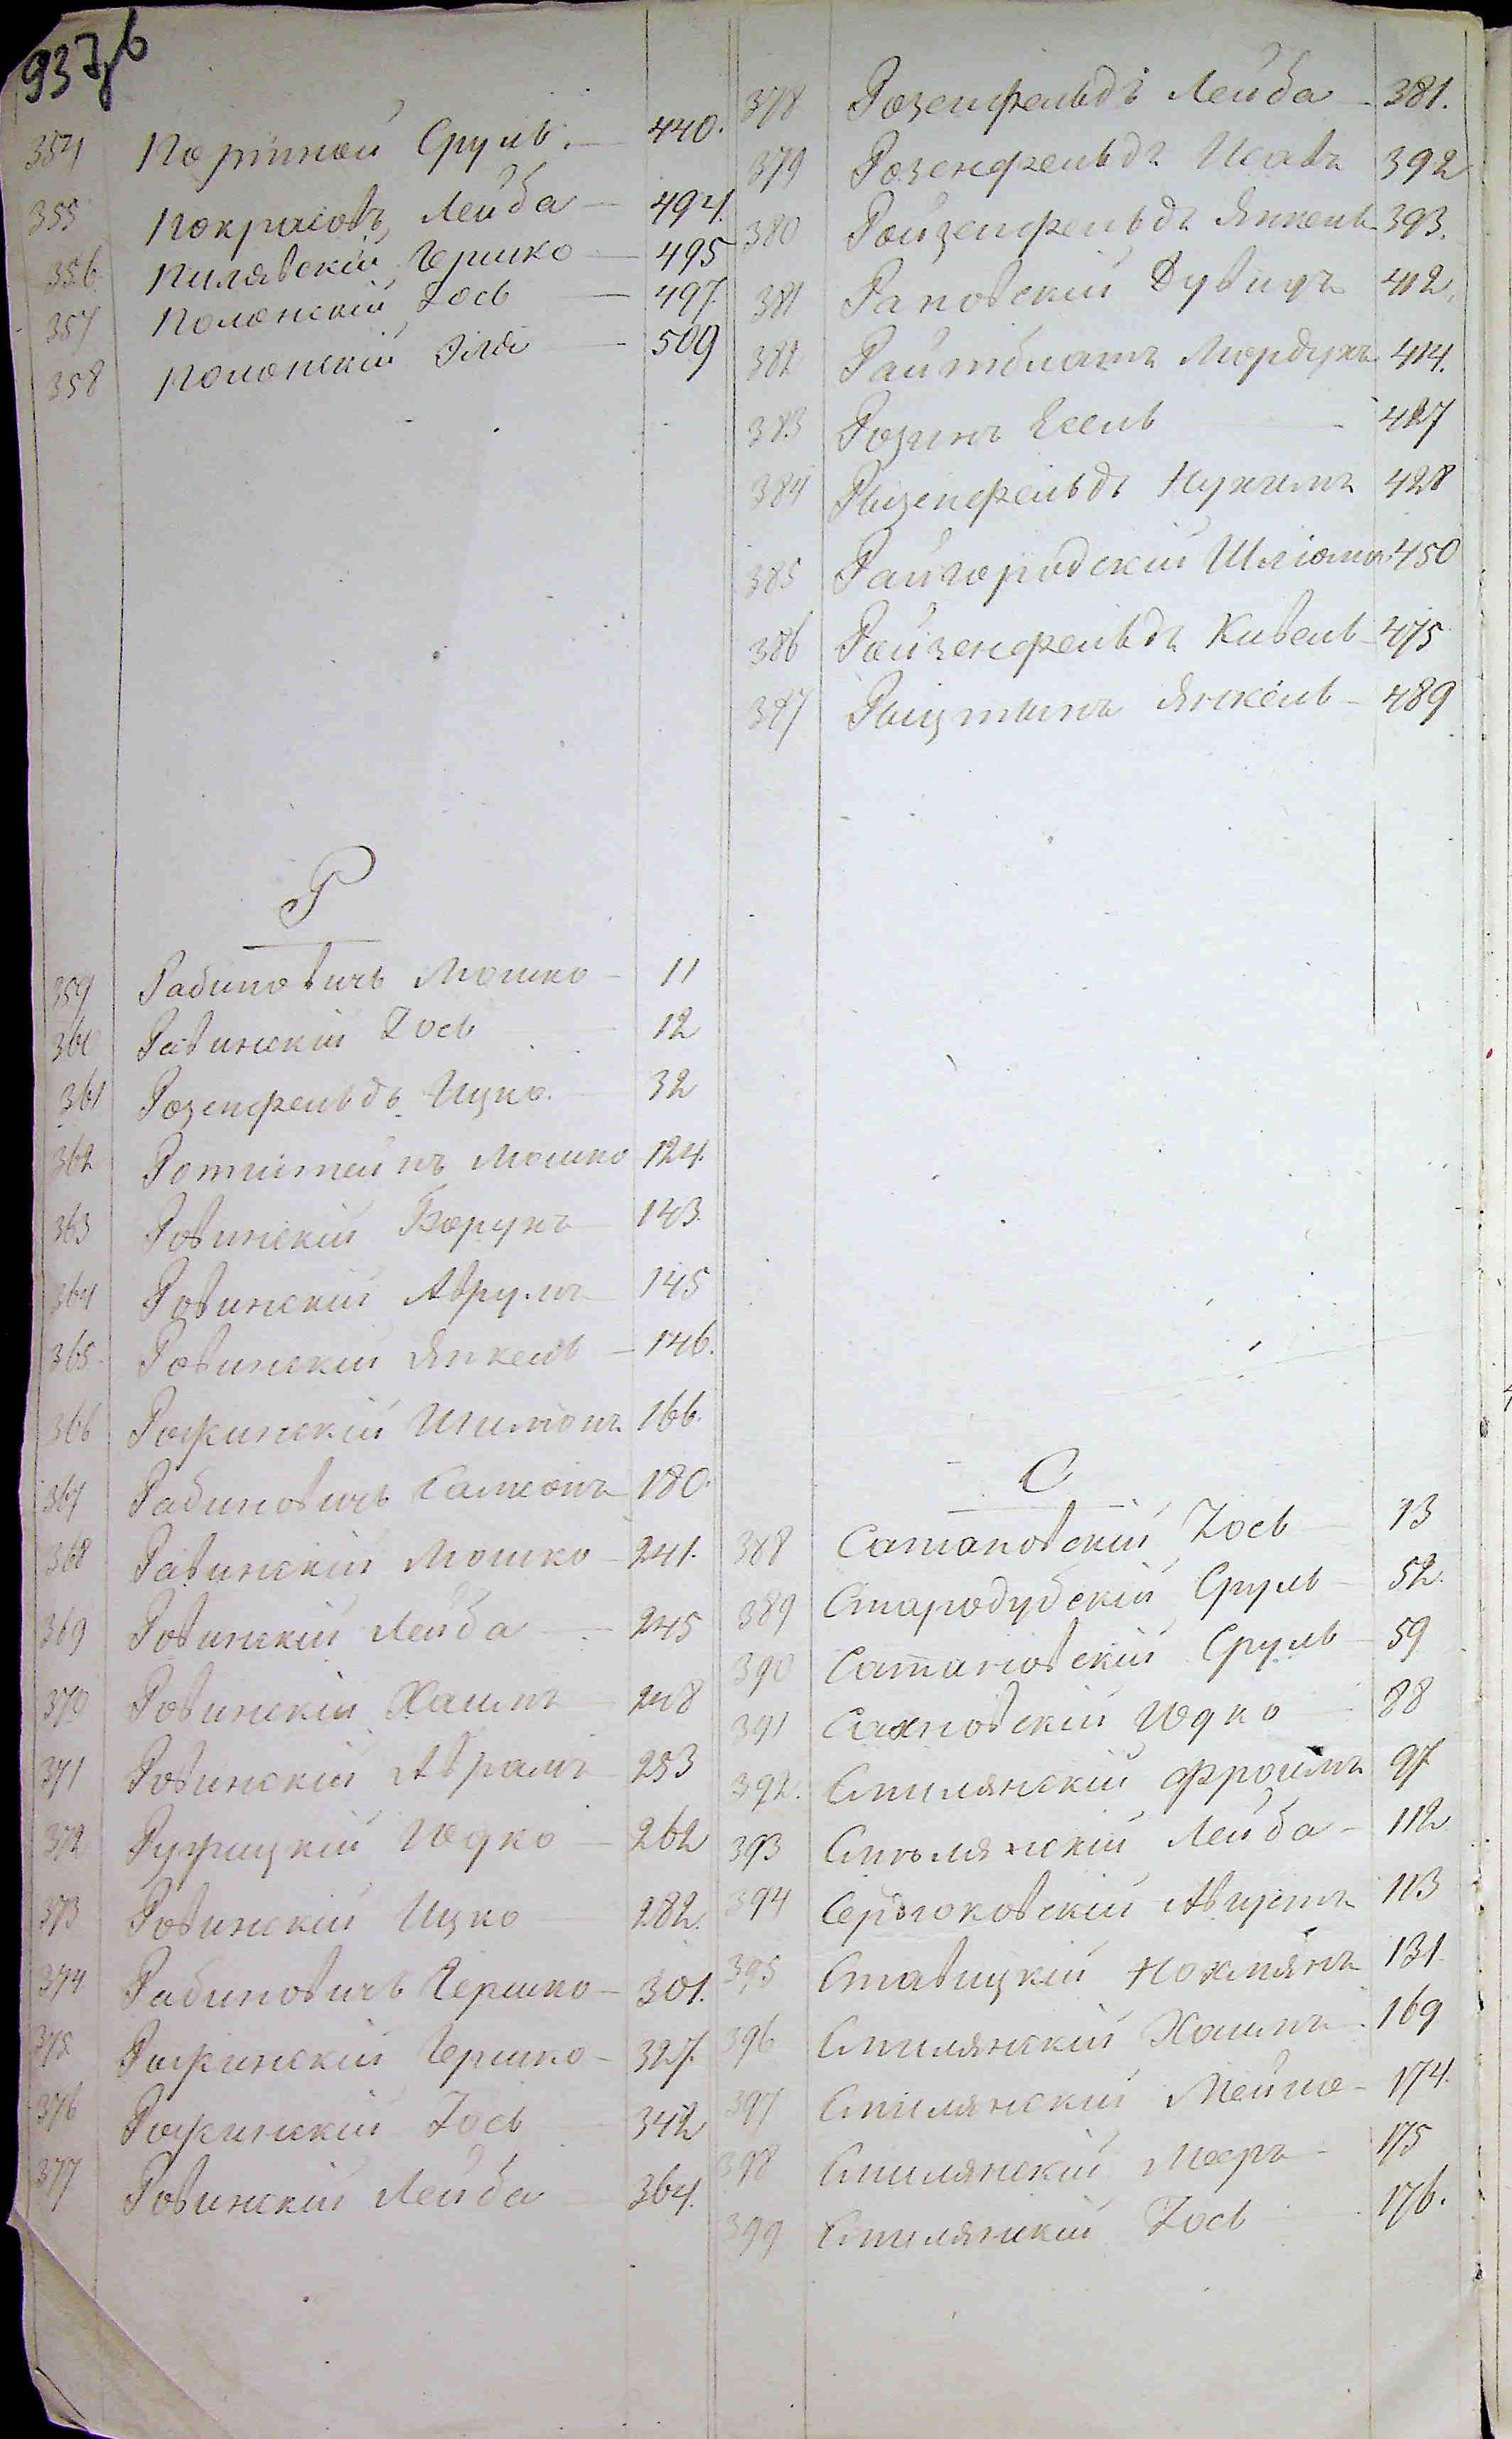 937,б
354 Портной Сруль. — 440.
355 Покрасовъ, Лейба — 494.
356. Пилявскій Гершко — 495
357 Полонскій Iось — 497
358 Полонскій Эля — 509
Р
359 Рабиновичъ Мошко — 11
360 Равинскій Iось 12
361 Розенфельдъ Ицко. 32
362 Ротштейнъ Мошко 124.
363 Ровинскій Борухъ 143.
364 Ровинскій Аврумъ 145
365. Ровинскій Янкель — 146.
366 Рожинскій Шимонъ 166.
367 Рабиновичъ Самсонъ 180.
368 Равинскій Мошко 241.
369 Ровинскій Лейба — 245
370 Ровинскій Хаимъ 248
371 Ровинскій Абрамъ 253
372 Ружицкій Юдко — 262
373 Ровинскій Ицко — 282.
374 Рабиновичъ Гершко — 301.
375 Рожинскій Гершко — 327.
376 Рожинскій Iось 342
377 Ровинскій Лейба 364.
378 Розенфельдъ Лейба — 381.
379 Розенфельдъ Исакъ 392
380 Ройзенфельдъ Янкель 393.
381 Раковскій Дувидъ 412.
382 Райтблатъ Мордухъ 414.
383 Розинъ Есель 427
384 Рызенфельдъ Нухимъ 428
385 Райгородскій Шліома 450
386 Ройзенфельдъ Кивель 475
387 Янкель — 489
С
388 Сатановскій Iось 13
389 Стародубскій Сруль — 52.
390 Сатановскій Сруль — 59
391 Сахновскій Юдко 88
392. Смилянскій Фроимъ 97
393 Смѣлянскій Лейба — 112
394 Августъ 113
395 Ставицкій 131.
396 Смилянскій Хаимъ 169
397 Смилянскій — 174.
398 Смилянскій Мееръ — 175
399 Смилянскій Iось 176.